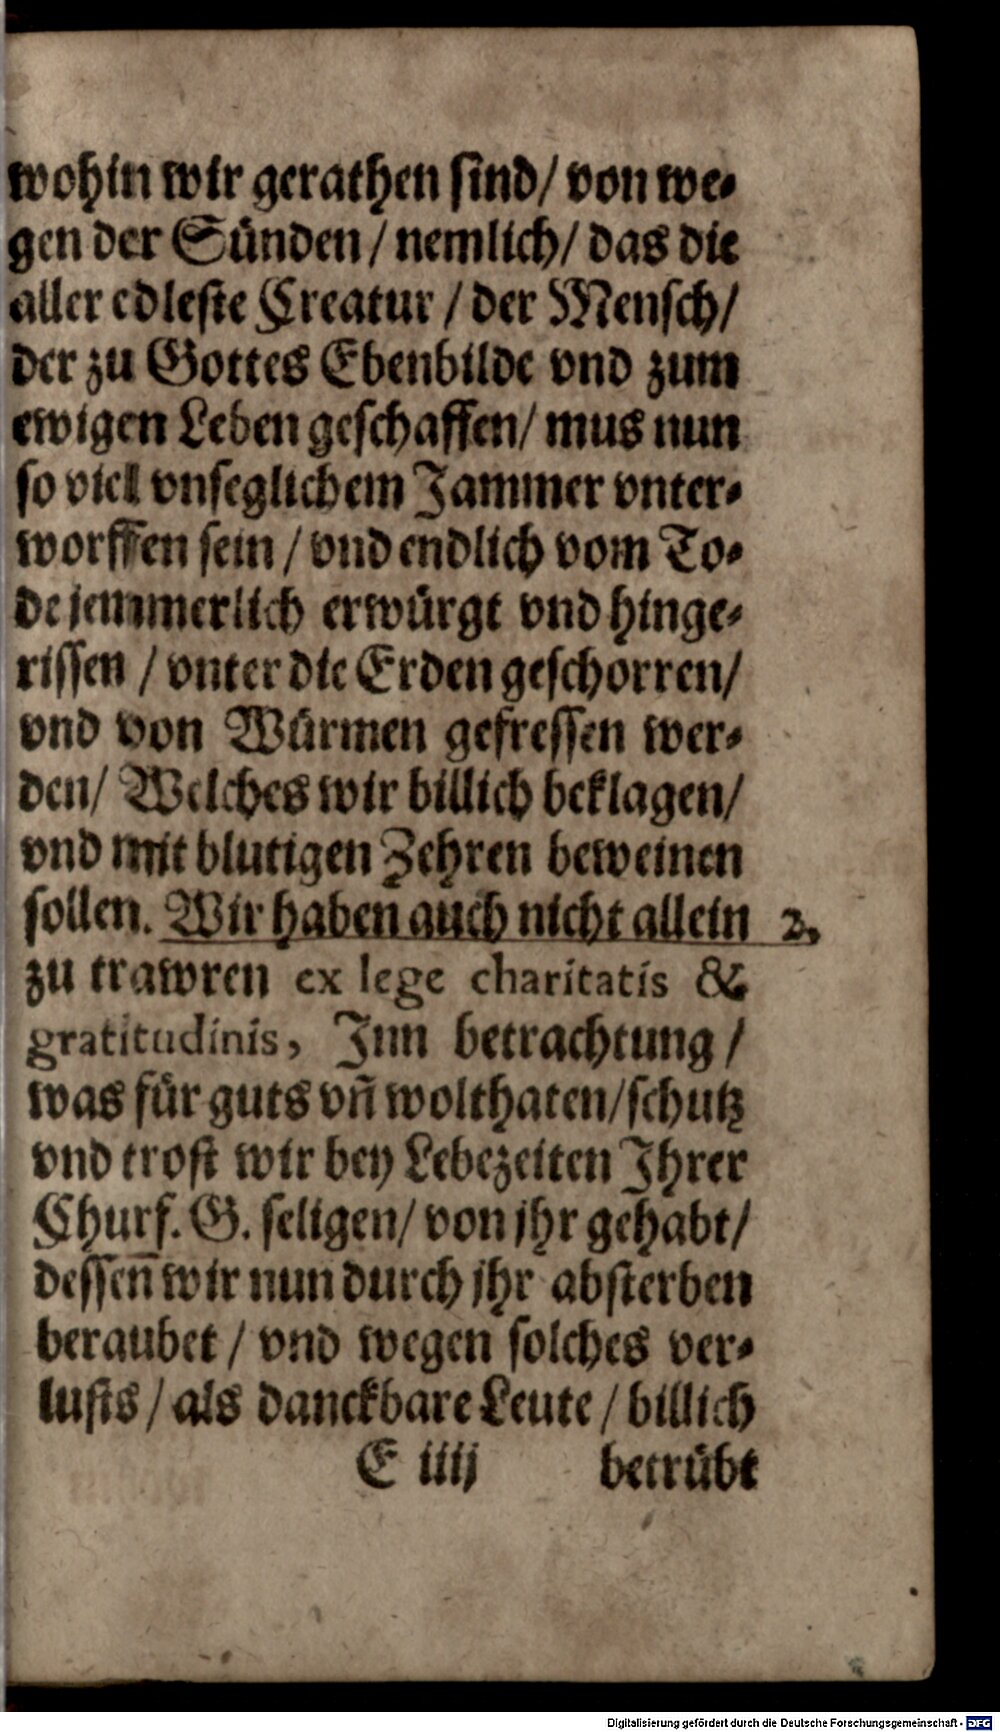 wohin wir gerathen sind/ von we-
gen der Sünden/ nemlich/ das die
aller edleste Creatur/ der Mensch/
der zu Gottes Ebenbilde vnd zum
ewigen Leben geschaffen/ mus nun
so viel vnseglichem Jammer vnter-
worffen sein/ vnd endlich vom To-
de jemmerlich erwürgt vnd hinge-
rissen/ vnter die Erden geschorren/
vnd von Würmen gefressen wer-
den/ Welches wir billich beklagen/
vnd mit blutigen Zehren beweinen
sollen. Wir haben auch nicht allein 2.
zu trawren ex lege charitatis &
gratitudinis, Inn betrachtung/
was für guts vñ wolthaten/schutz
vnd trost wir bey Lebezeiten Ihrer
Churf. G. seligen/ von jhr gehabt/
desseñ wir nun durch jhr absterben
beraubet/ vnd wegen solches ver-
lusts/ als danckbare Leute/ billich
E iiij betrübt
Digitalisierung gefördert durch die Deutsche Forschungsgemeinschaft - DFG